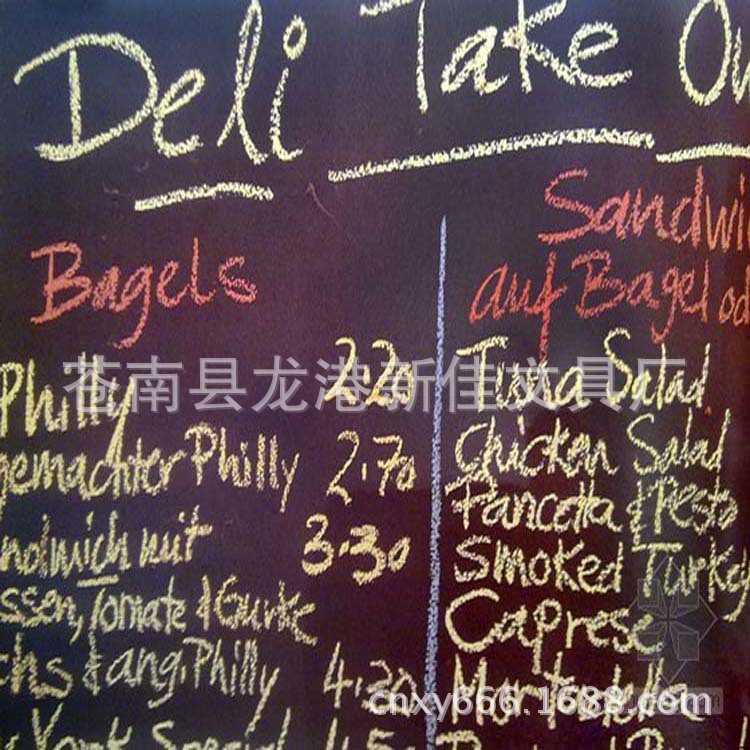 Deli Take
Bagels
Philly 2.20
gemachter Philly 2.70
ndwich mit 3.30
ssen, Tomate & Gurke
chs & angi. Philly 4.20
York Special 4.5
Sandwi
auf Bagel od
Tuna Salad
Chicken Salad
Pancetta & Pesto
Smoked Turkey
Caprese
Mortadella
苍南县龙港新佳文具厂
cnxy666.1688.com